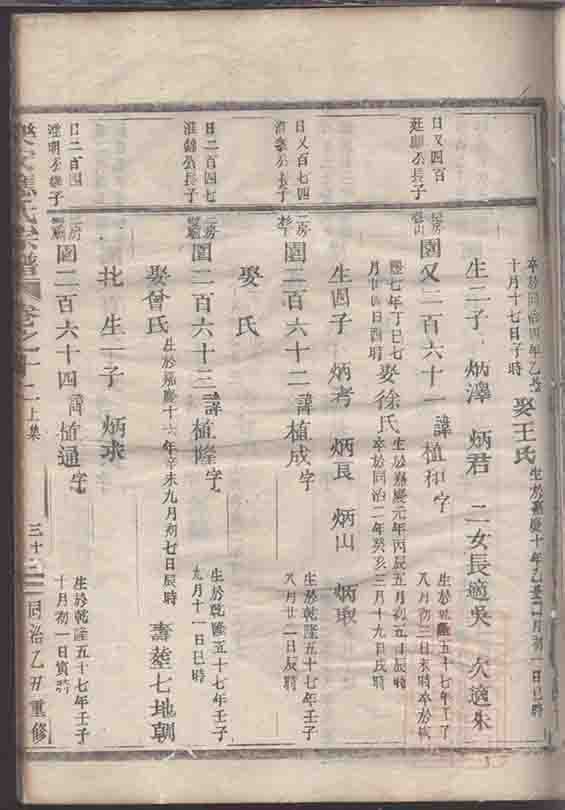 卒於同治四年乙丑
十月十七日子時
娶王氏
生於嘉慶十年乙丑二月初一日巳時
生二子 炳澤 炳君 二女長適吳 次適朱
日又四百
長子
圜又二百六十一諱植和字
生於乾隆五十七年壬子
八月初三日未時卒於咸
豐七年丁巳七
月廿四日酉時
娶徐氏
生於嘉慶元年丙辰五月初五日辰時
卒於同治二年癸亥三月十九日戌時
生四子 炳考 炳良 炳山 炳取
日又百七四二房
長子
圜二百六十二諱植成字
生於乾隆五十七年壬子
八月廿一日辰時
娶 氏
日二百四七二房
長子
圜二百六十三諱植隆字
生於乾隆五十七年壬子
九月十一日巳時
娶曾氏
生於嘉慶十六年辛未九月初七日辰時
壽塟七地朝
北 生一子 炳球
日二百四 二房
圜二百六十四諱植通字
生於乾隆五十七年壬子
十月初一日寅時
氏宗譜 卷之十二上集 三十 同治乙丑重修